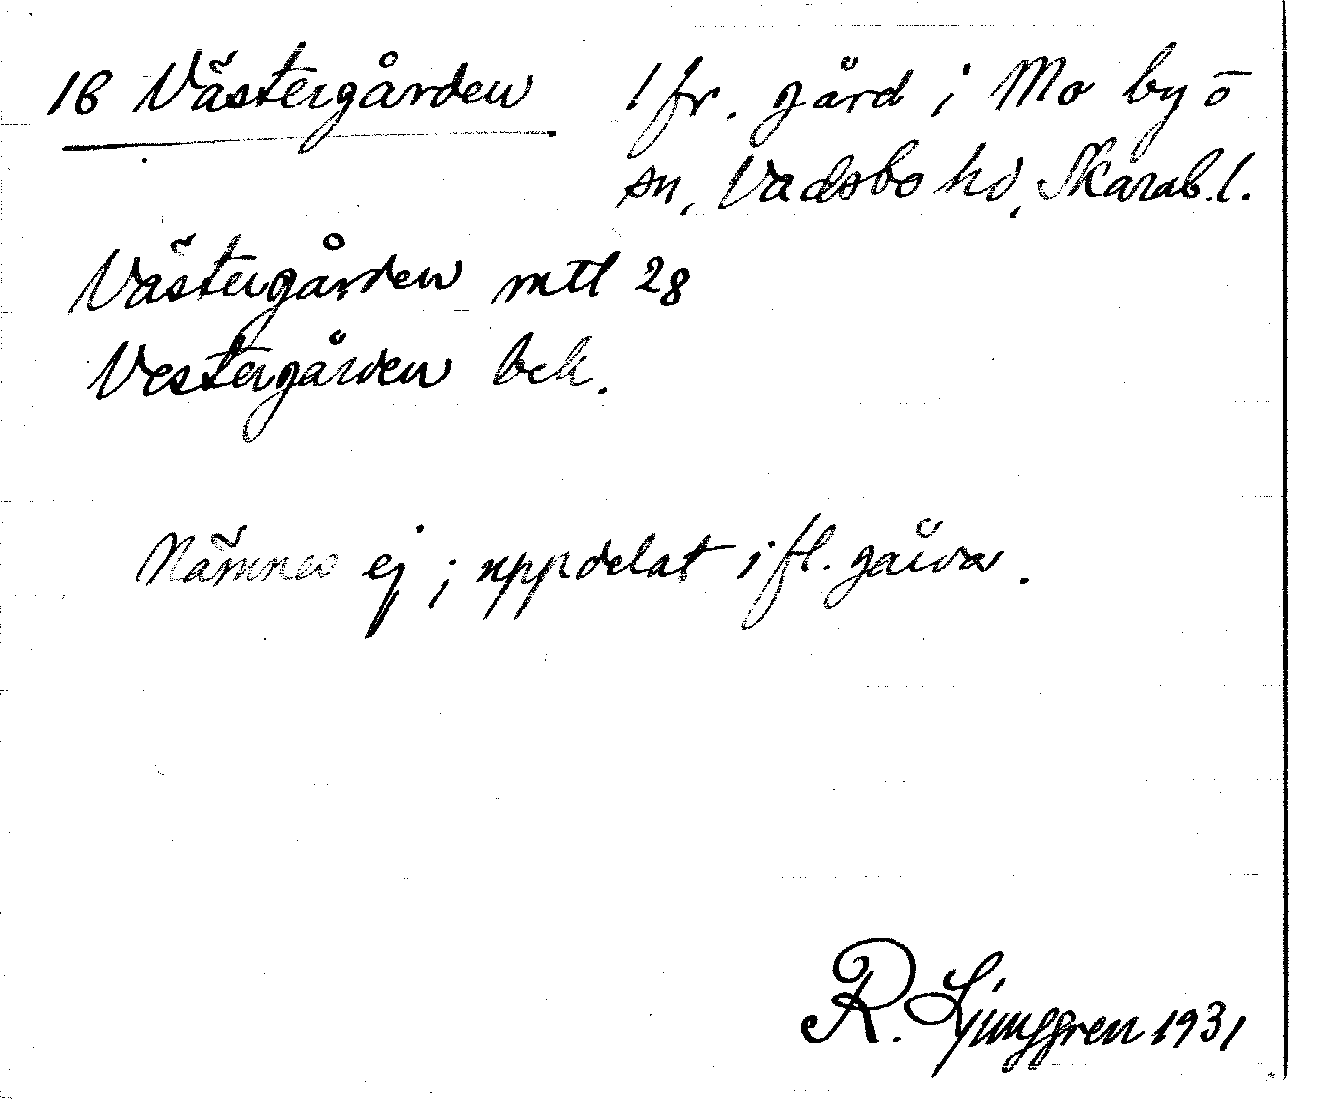 16 Västergården 1 fr. gård i Mo by o
sn, Vadsbo hd, Skarab.l.
Västergården mtl 28
Vestergården bek.
Nämnes ej; uppdelat i fl. gårdar.
R. Ljunggren 1931